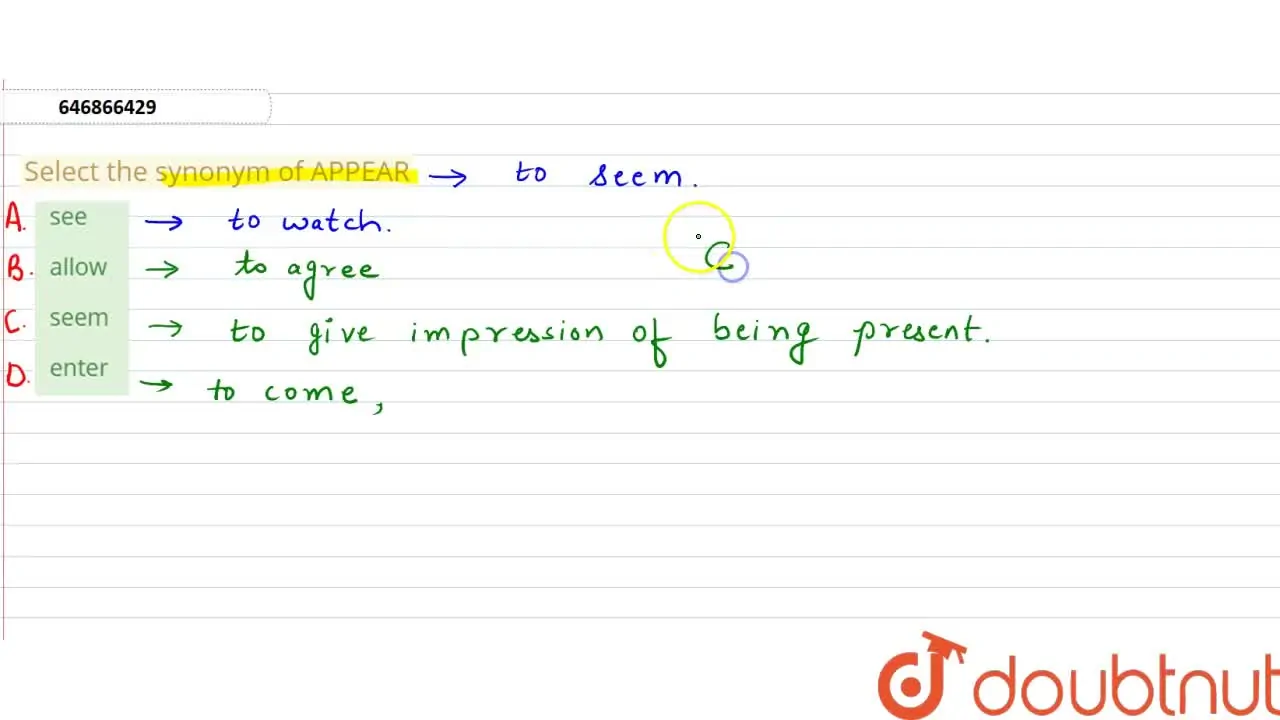 646866429
Select the synonym of APPEAR → to seem.
A. see → to watch.
C
B. allow → to agree
C. seem → to give impression of being present.
D. enter → to come,
doubtnut